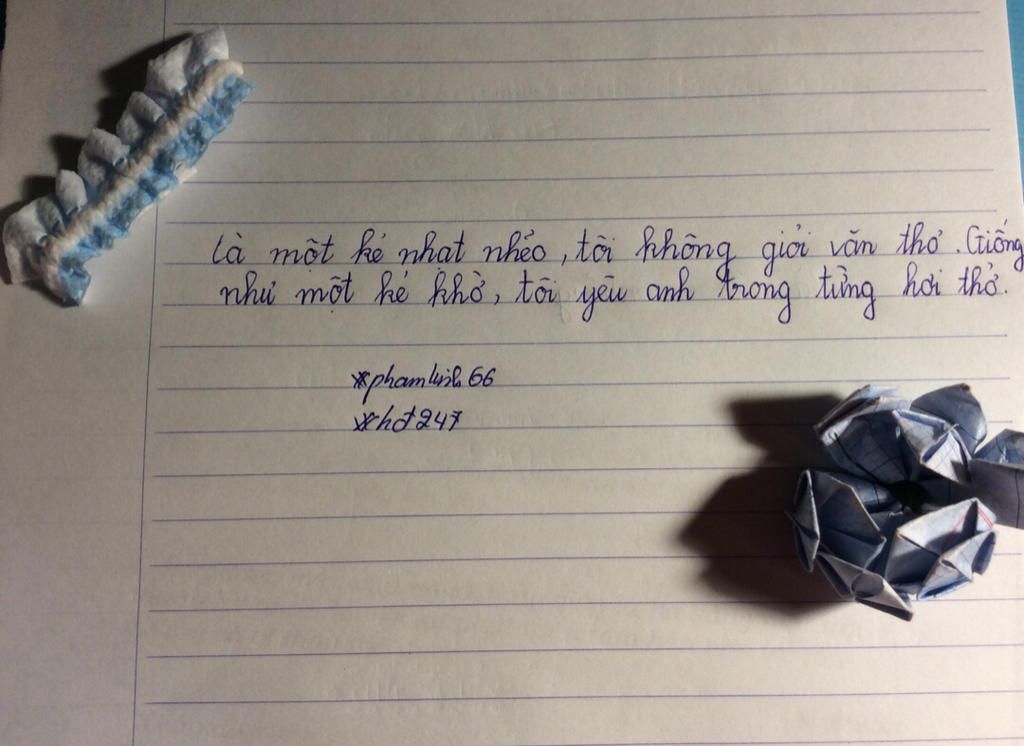 Là một kẻ nhạt nhẽo, tôi không giỏi văn thơ. Giống
như một kẻ khờ, tôi yêu anh trong từng hơi thở.
*phamlinh66
*hđ247